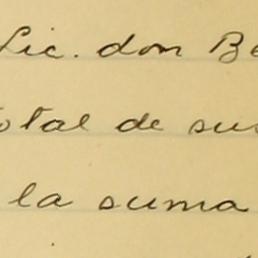 Lic. don Be
total de sus
la suma